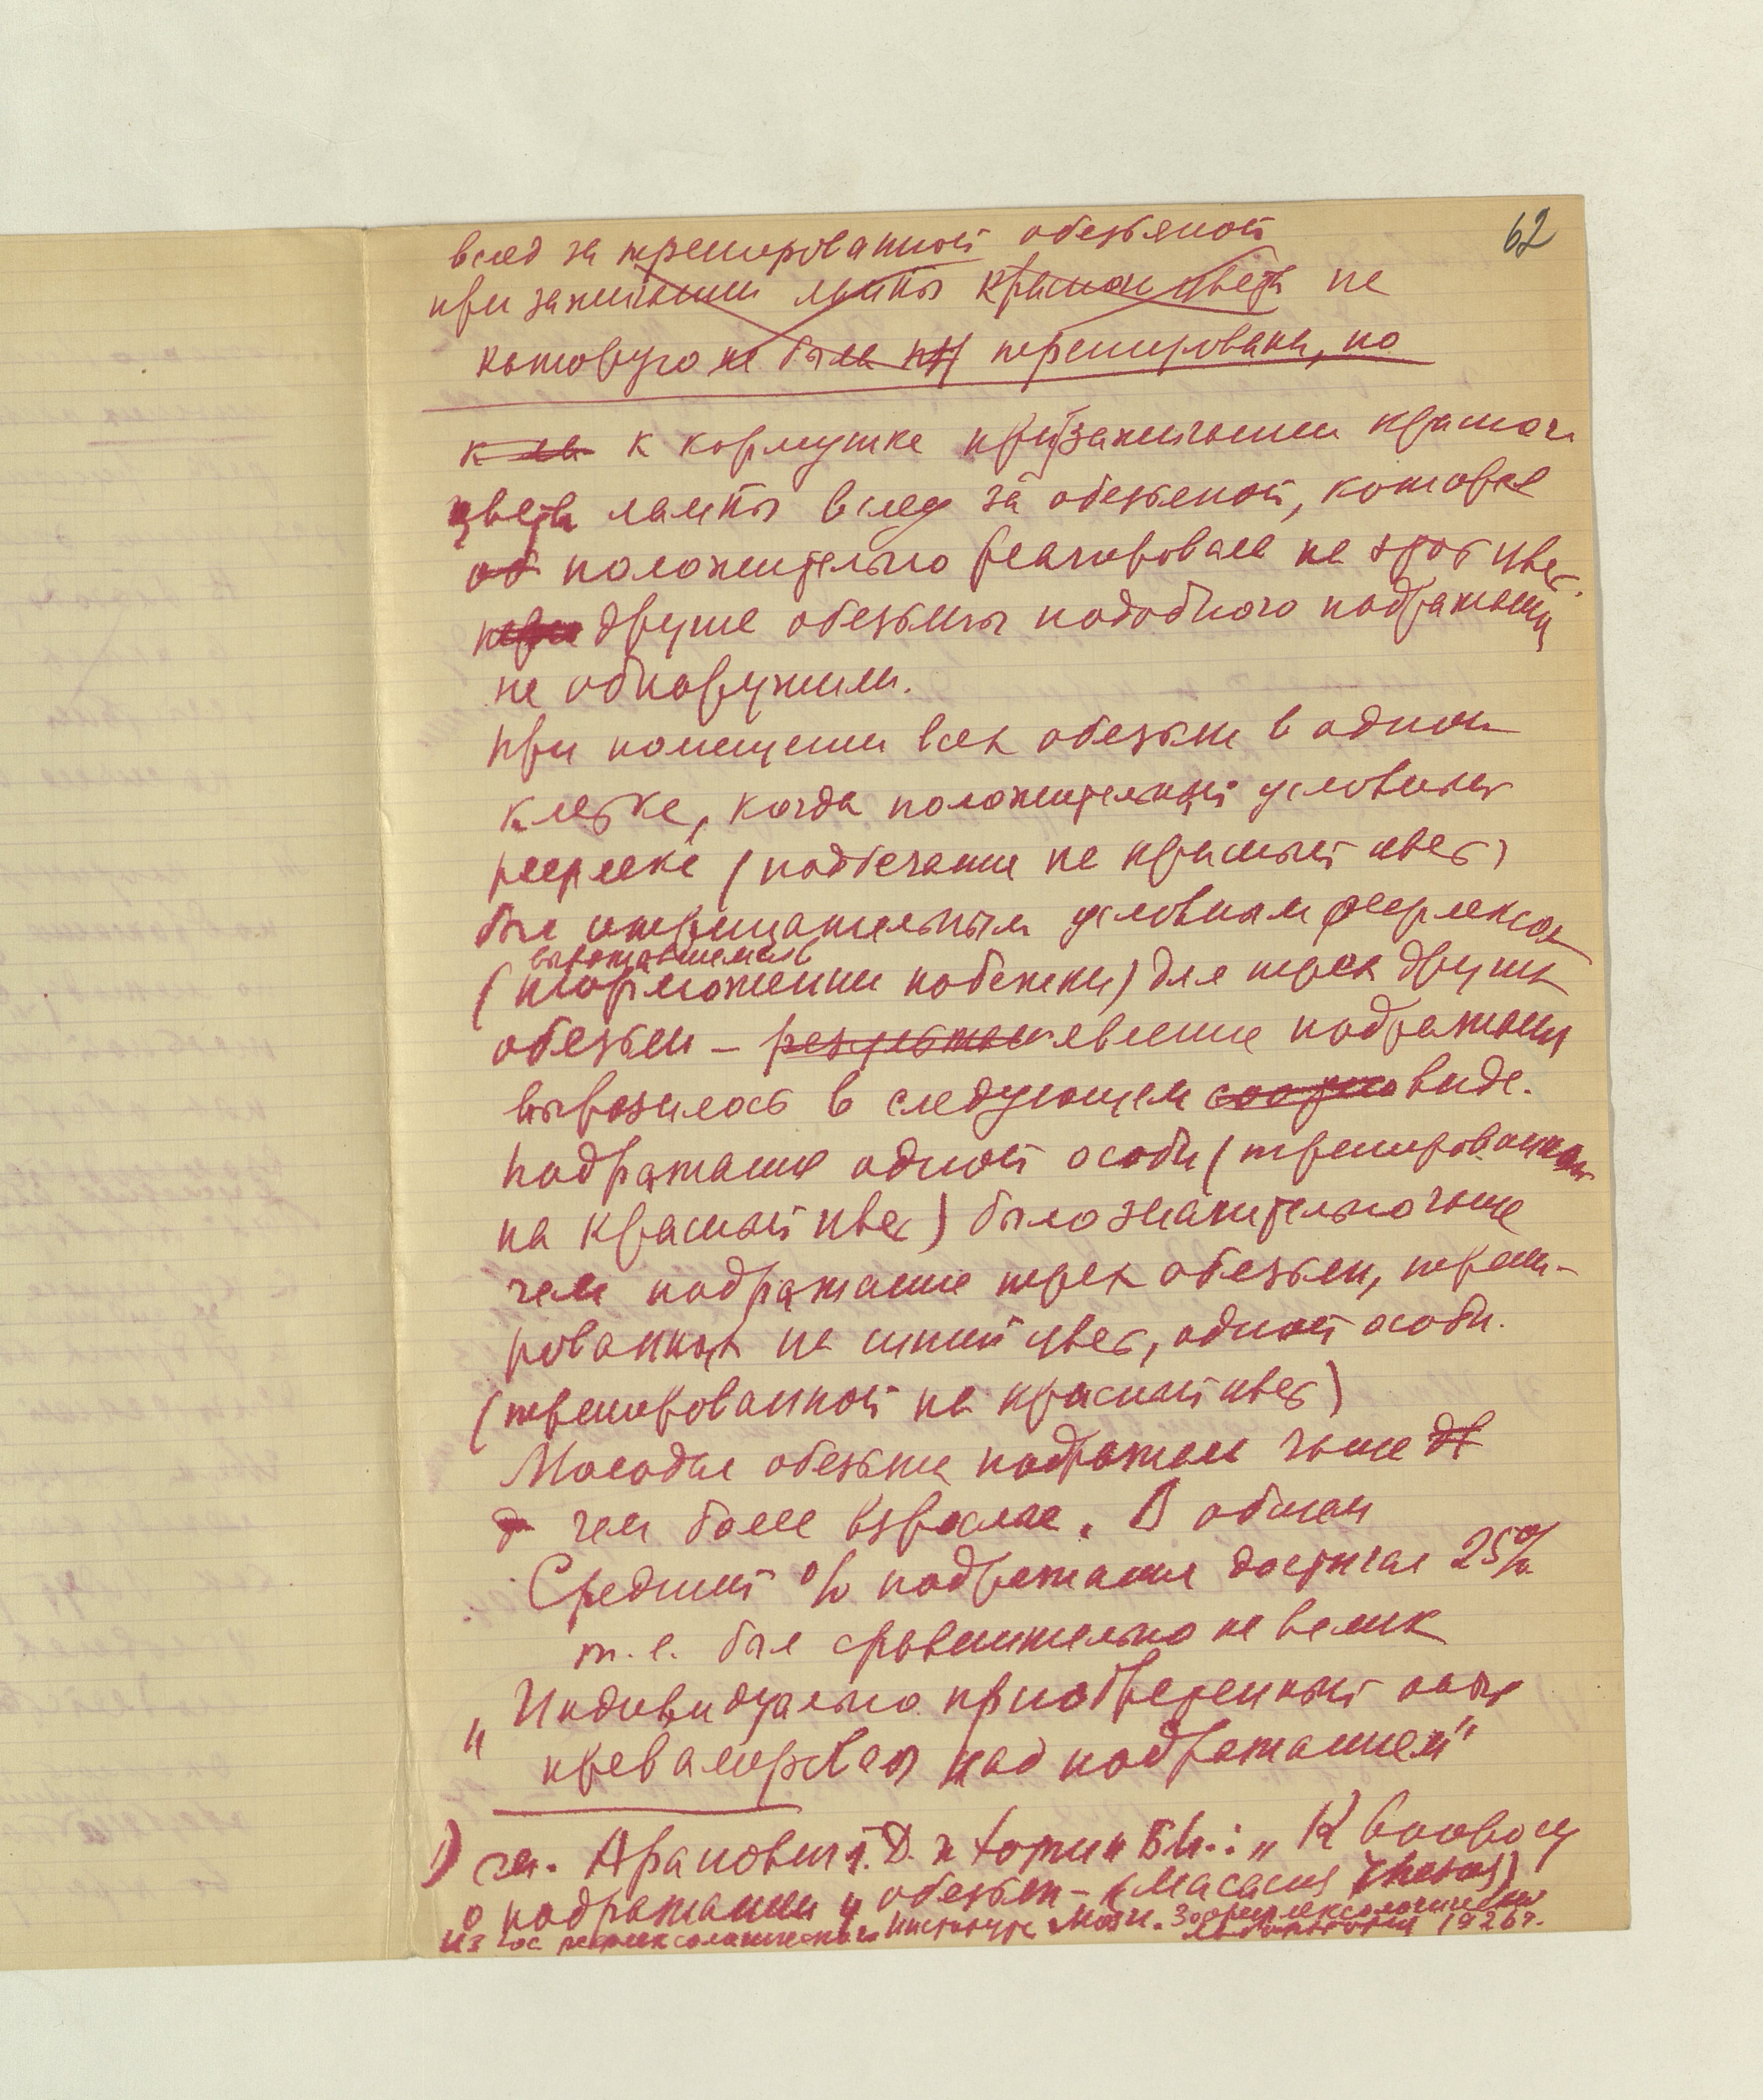 62
вслед за тренированной обезьяной
при зажигании лампы красного цвета не
которую не была тренирована, но
к кормушке при зажигании красного
цвета лампы вслед за обезьяной, которая
об положительно реагировала на этот цвет.
другие обезьяны подобного подражания
не обнаружили.
При помещении всех обезьян в одной
клетке, когда положительный условный
рефлекс (подбегание на красный цвет)
был отрицательным условным рефлексом
выражавшемся в
(торможении побежки) для трех других
обезьян – явление подражания
выразилось в следующем виде.
Подражание одной особи (тренированной
на красный цвет) было значительно чаще
чем подражание трех обезьян, трени-
рованных на синий цвет, одной особи.
(тренированной на красный цвет)
Молодые обезьяны подражали чаще
чем более взрослые. В общем
Средний % подражания достигал 25%
т.е. был сравнительно не велик
„Индивидуально приобретенный опыт
превалировал над подражанием"
1) см. Арапович Г.Д. и Хотин Б.И.: „К вопросу
о подражании у обезьян –
Из Гос рефлексологического Института Мозга. Зоорефлексологическая
лаборатория 1926 г.